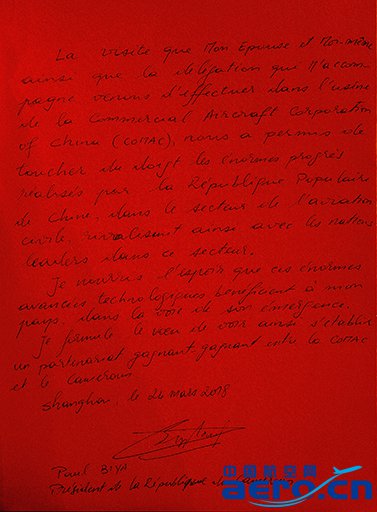 La visite que Mon Epouse et Moi-même
ainsi que la délégation qui M'accom-
pagne venons d'effectuer dans l'usine
de la Commercial Aircraft Corporation
of China (COMAC), nous a permis de
toucher du doigt les énormes progrès
réalisés par la République Populaire
de Chine, dans le secteur de l'aviation
civile, rivalisant ainsi avec les nations
leaders dans ce secteur.
Je nourris l'espoir que ces énormes
avancées technologiques bénéficient à mon
pays, dans la voie de son émergence.
Je formule le vœu de voir ainsi s'établir
un partenariat gagnant-gagnant entre la COMAC
et le Cameroun.
Shanghai, le 24 mars 2018
Paul BIYA
Président de la République du Cameroun
中国航空网
aero.cn